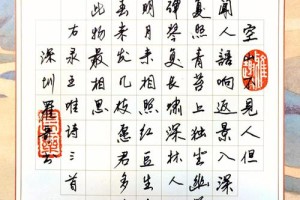 空山不见人但
闻人语响返景入深
复照青苔上独坐幽
弹琴复长啸深林人
明月来相照红豆生
来发几枝愿君多
此物最相思
右录王维诗三首
深圳罗